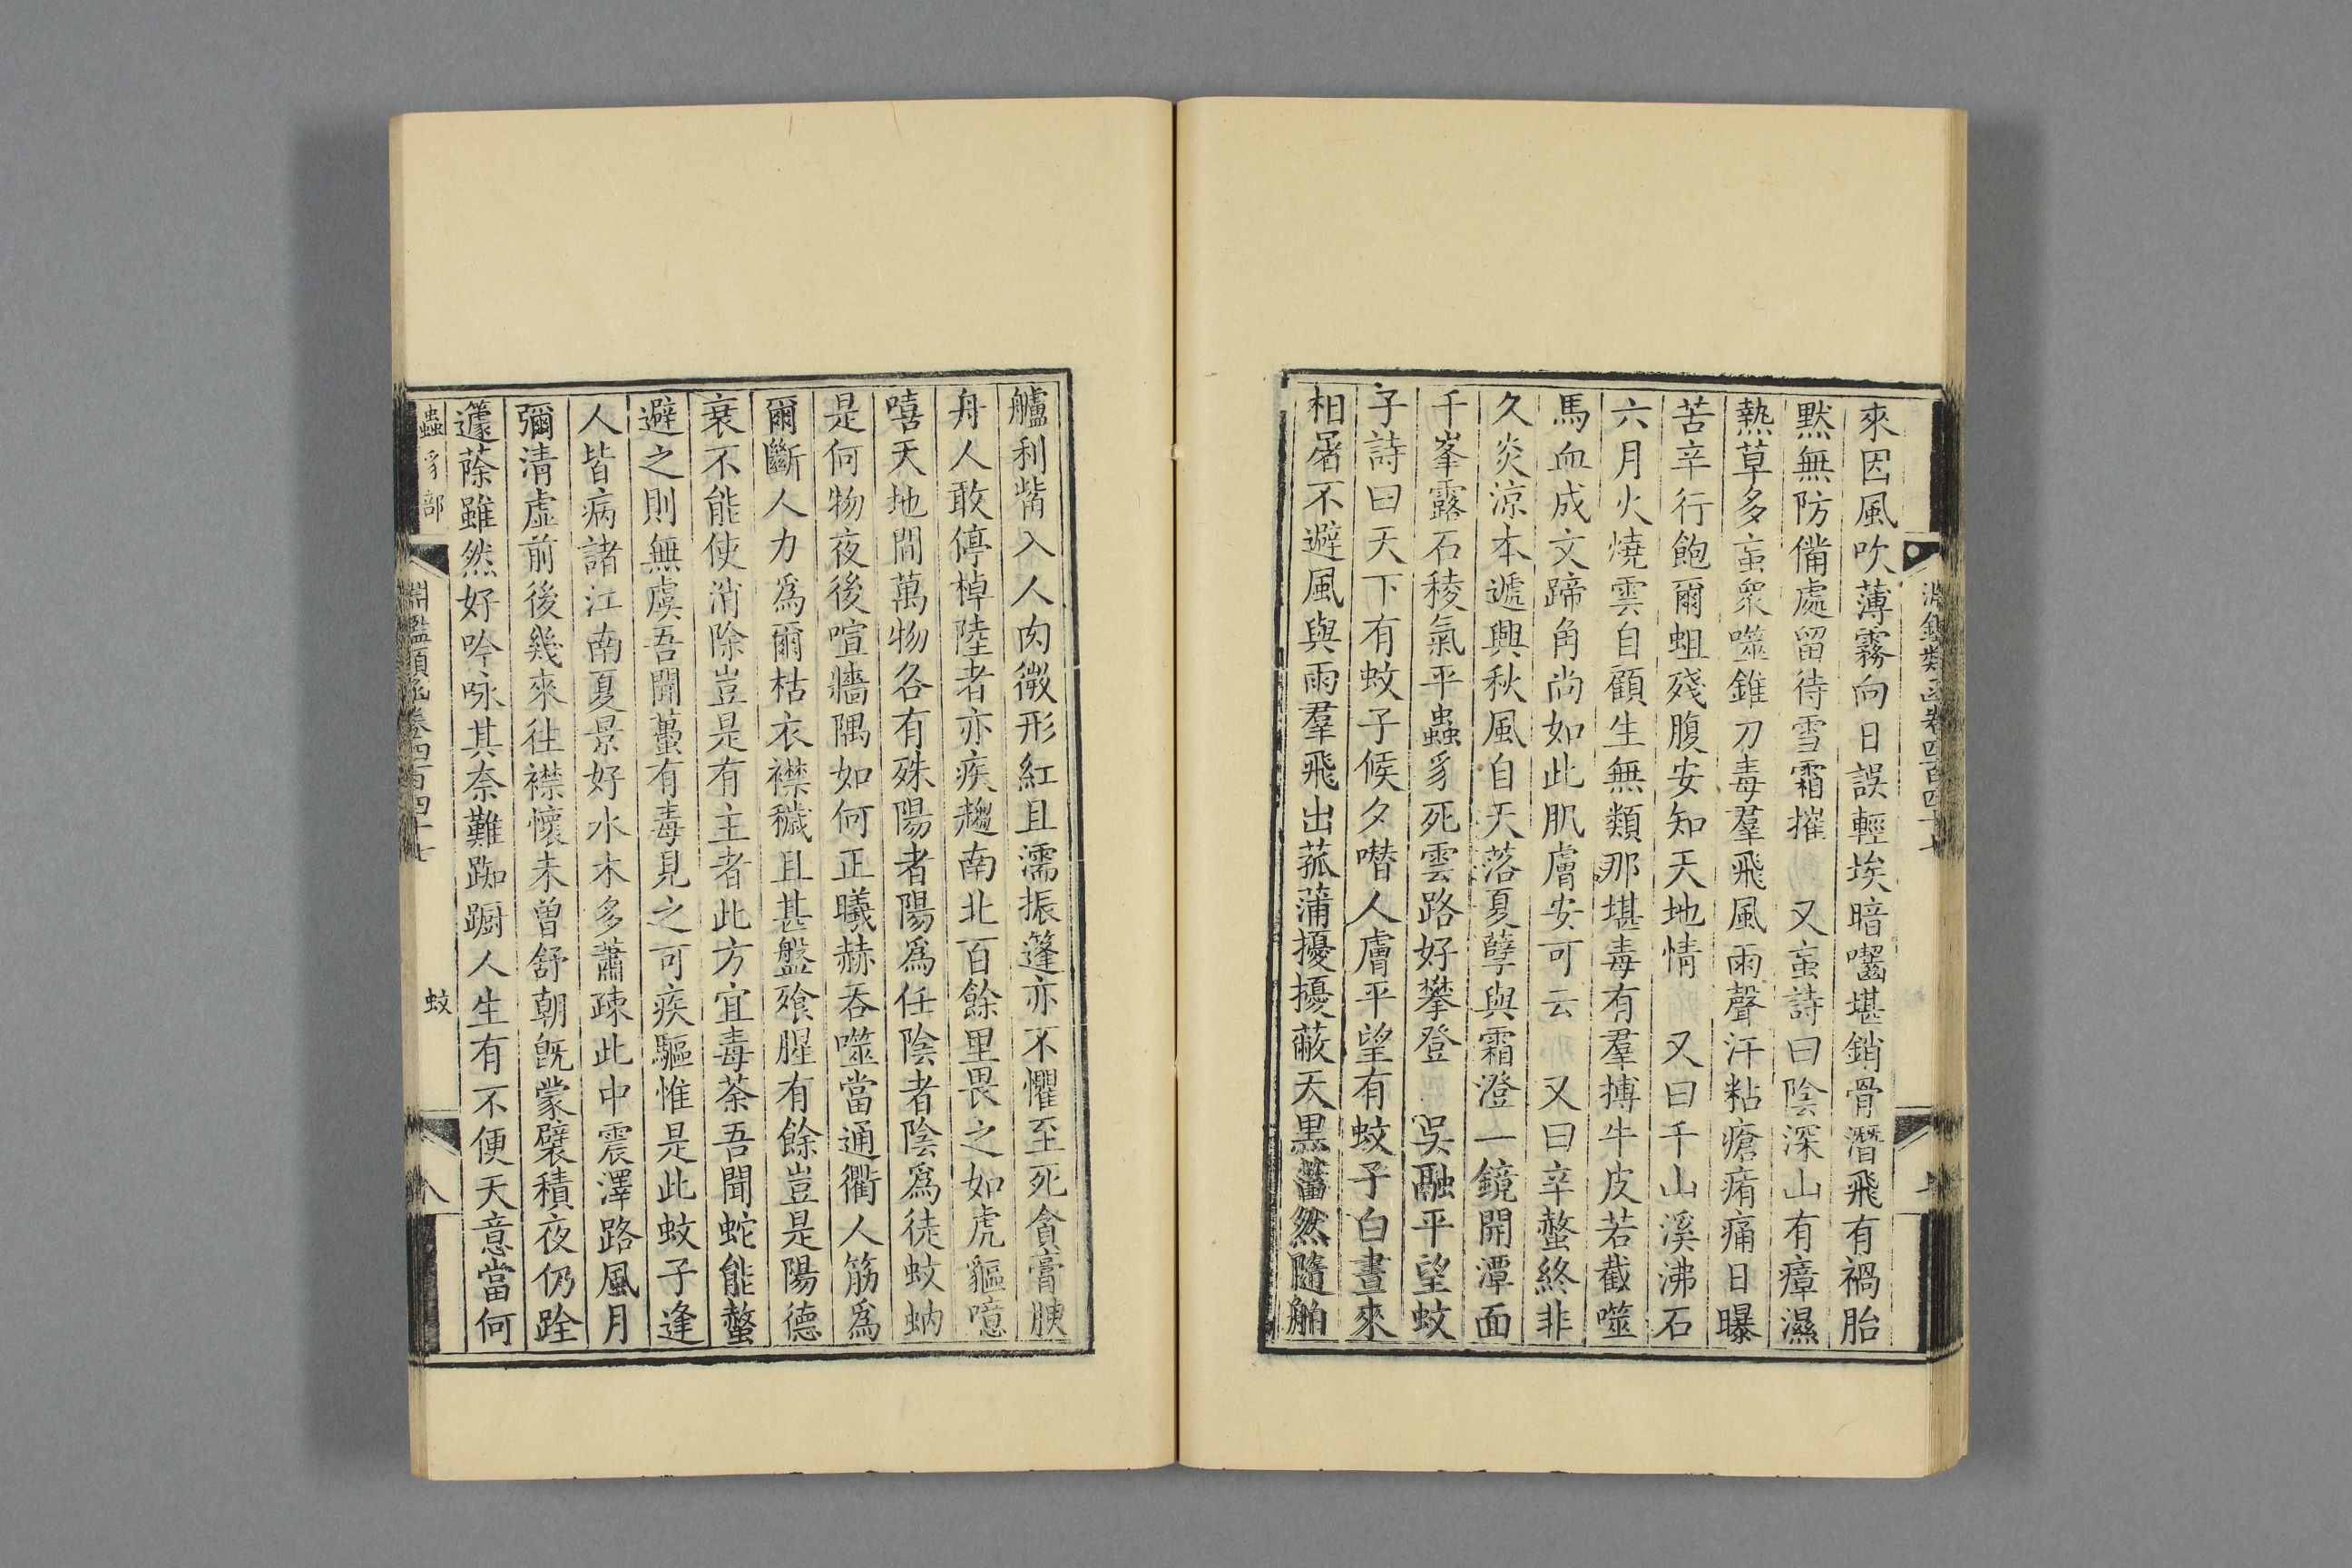 來因風吹薄霧向日誤輕埃暗囓堪銷骨潛飛有禍胎
默無防備處留待雪霜摧 又䖟詩曰陰深山有瘴濕
熱草多䖟衆噬錐刀毒羣飛風雨聲汗粘瘡痏痛日曝
苦辛行飽爾蛆殘腹安知天地情 又曰千山溪沸石
六月火燒雲自顧生無類那堪毒有羣搏牛皮若截噬
馬血成文蹄角尚如此肌膚安可云 又曰辛螫終非
久炎涼本遞興秋風自天落夏孽與霜澄一鏡開潭面
千峯露石稜氣平蟲豸死雲路好攀登 吳融平望蚊
子詩曰天下有蚊子候夕噆人膚平望有蚊子白晝來
相屠不避風與雨羣飛出菰蒲擾擾蔽天黑蕃然隨舳
淵鑑類函卷四百四十七
艫利觜入人肉微形紅且濡振篷亦不懼至死貪膏腴
舟人敢停棹陸者亦疾趨南北百餘里畏之如虎貙噫
嘻天地間萬物各有殊陽者陽爲任陰者陰爲徒蚊蚋
是何物夜後喧牆隅如何正曦赫吞噬當通衢人筋爲
爾斷人力爲爾枯衣襟穢且甚盤飧腥有餘豈是陽德
衰不能使消除豈是有主者此方宜毒荼吾聞蛇能螫
避之則無虞吾聞蠆有毒見之可疾驅惟是此蚊子逢
人皆病諸江南夏景好水木多蕭疎此中震澤路風月
彌清虛前後幾來往襟懷未曾舒朝既蒙襞積夜仍跧
籧蒢雖然好吟咏其奈難踟躕人生有不便天意當何
蟲豸部 淵鑑類函卷四百四十七 蚊 八